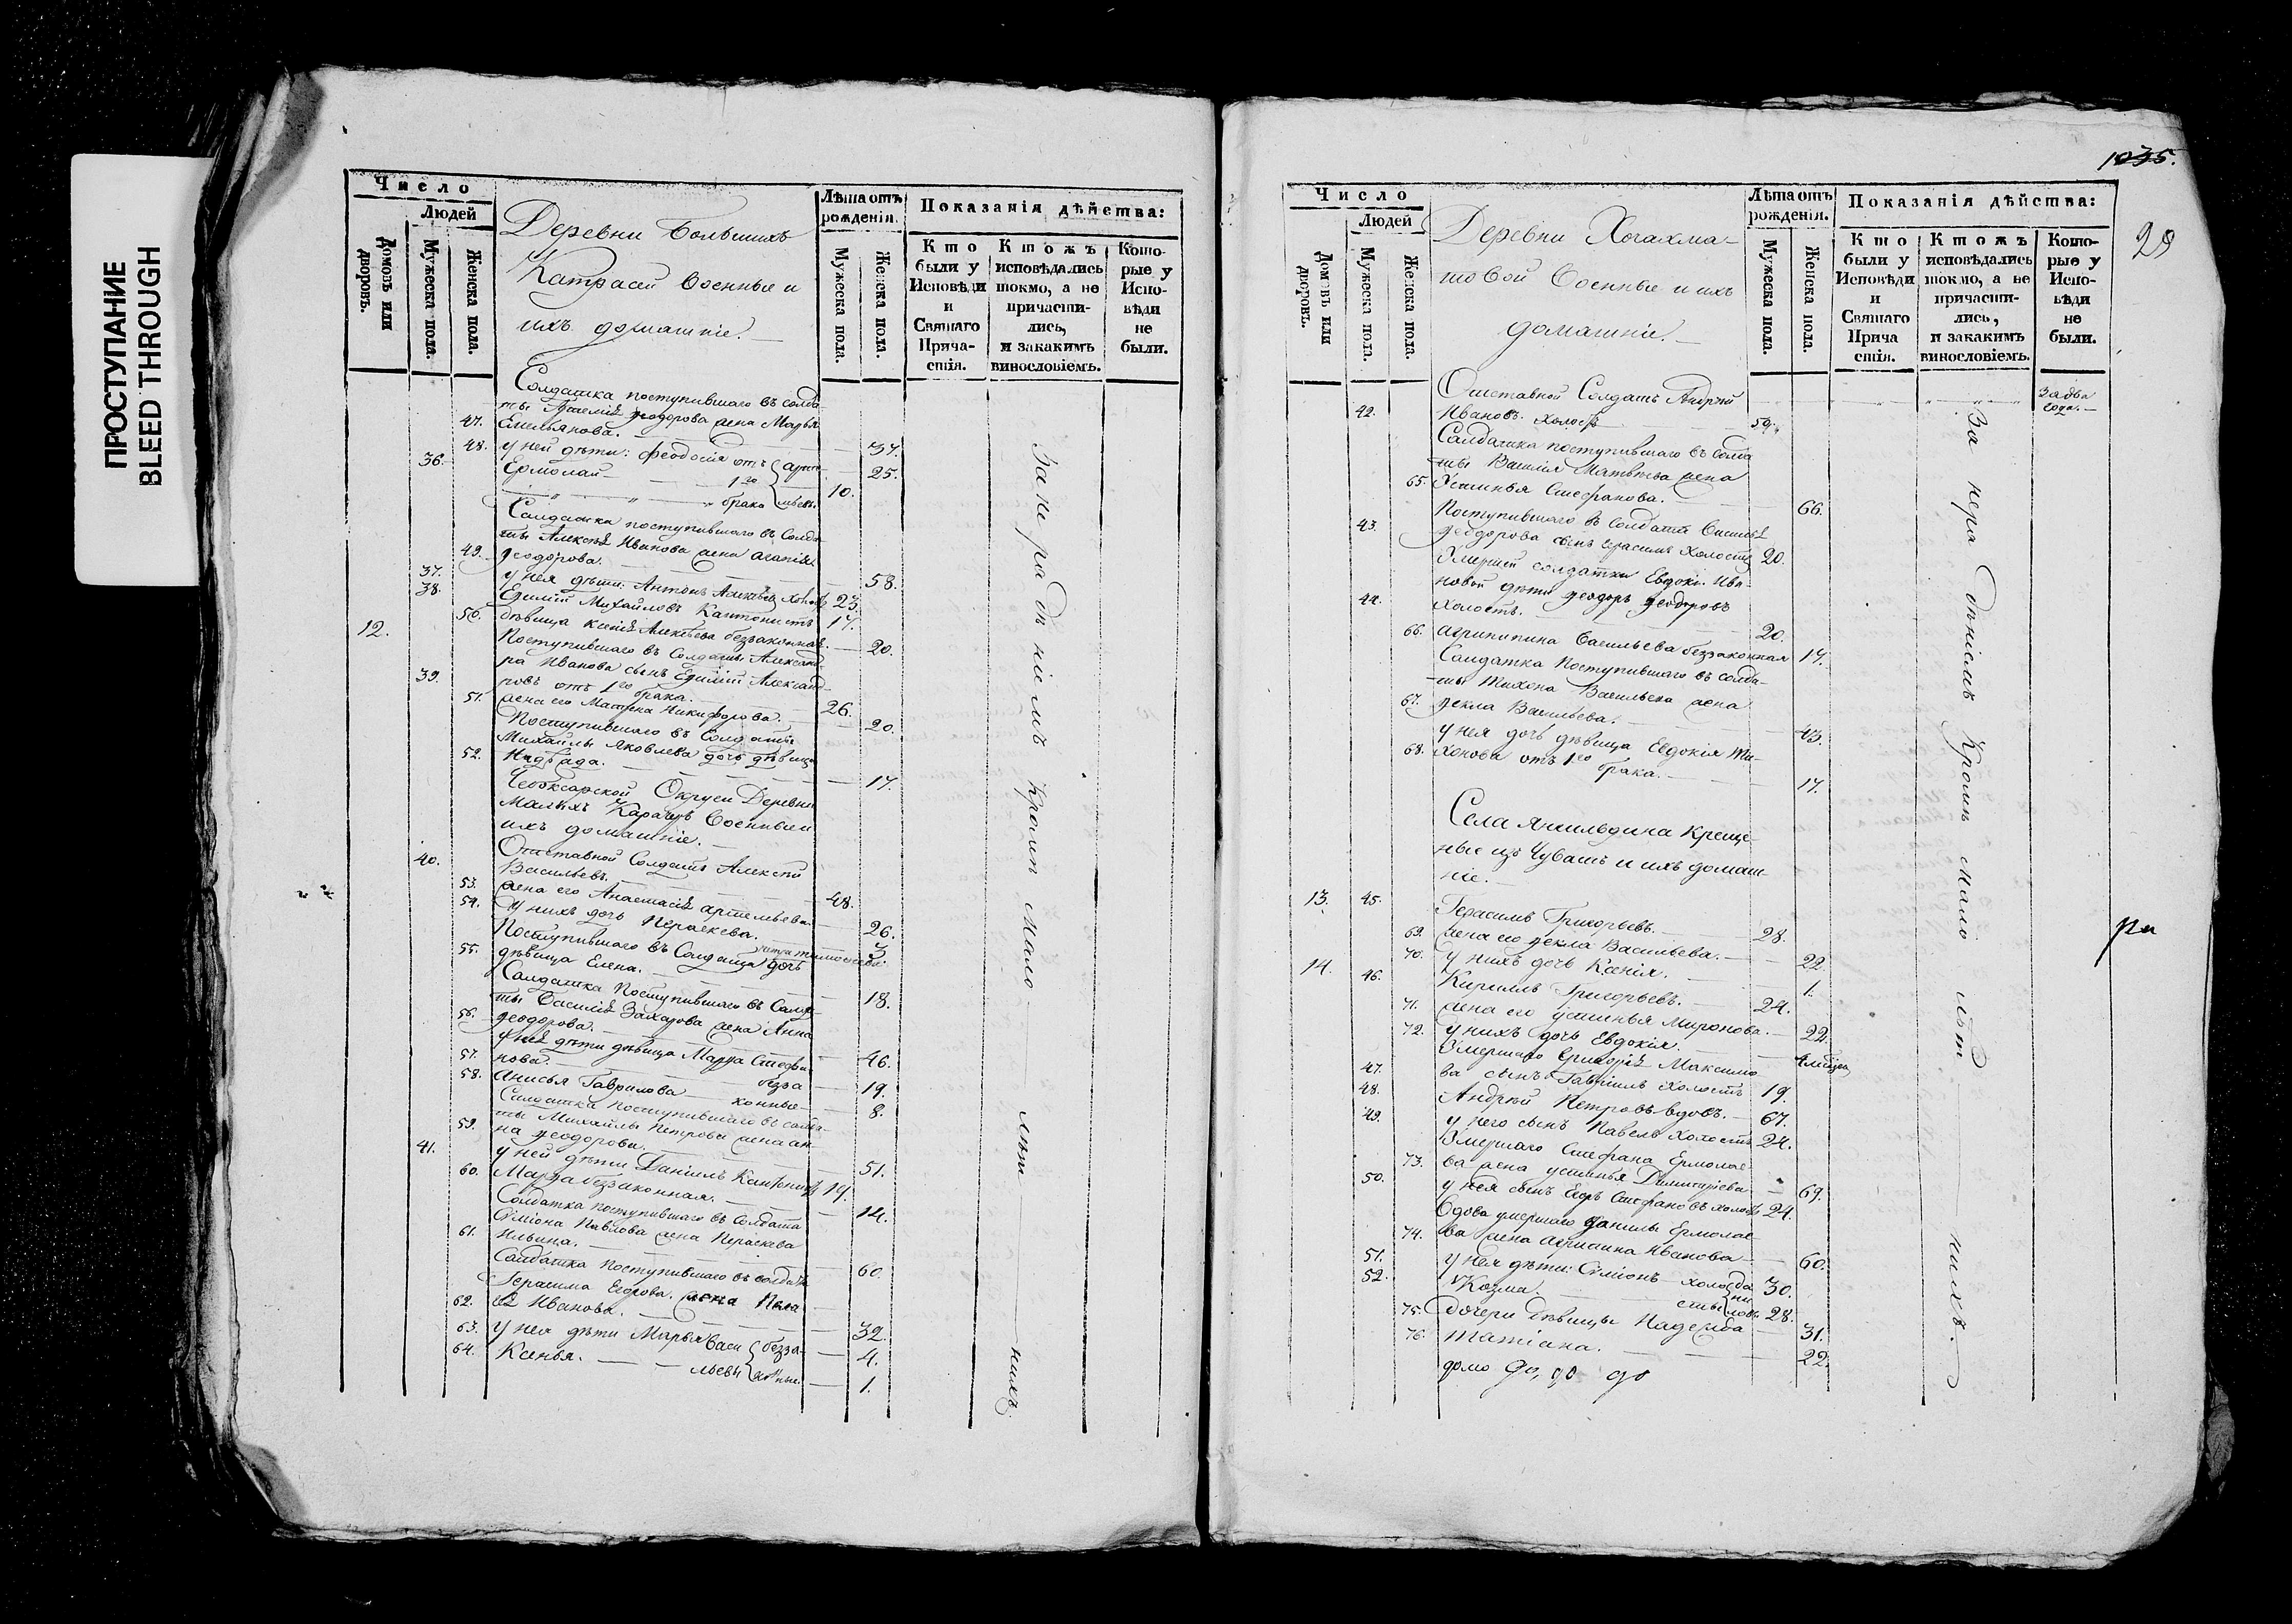 ПРОСТУПАНИЕ
BLEED THROUGH
Число
Людей
Домовъ или дворовъ.
Мужеска пола.
Женска пола.
Деревни Большихъ
Катрасей Военные и
ихъ домашніе.
Лѣта отъ
рожденія.
Мужеска пола.
Женска пола.
Показанія дѣйства:
Кто были у Исповѣди и Святаго Прича-стія.
Ктожъ исповѣдались токмо, а не причасти-лись, и закакимъ винословіемъ.
Кото-рые у Испо-вѣди не были.
Солдатка поступившаго въ солда-
ты феодорова жена Марья
47. Емельянова. 37.
48. у ней дѣти: Феодосія отъ 25.
36. Ермолай 1го 10.
брака
Салдатка поступившаго въ Солда-
ты Алексѣя Иванова жена Агафія
49. Феодорова. 58.
37. у нея дѣти: Антонъ 23.
38. Ефимій Михайловъ Кантонистъ 17.
50. дѣвица Ксенія Алексѣева беззаконная. 20.
12. Поступившаго въ Солдаты Александ-
ра Иванова сынъ Ефимій Александ-
39. ровъ отъ 1го брака. 26.
51. жена его Матрена Никифорова. 20.
Поступившаго въ Солдаты
Михайлы Яковлева дочь дѣвица
52. Надежда. 17.
Чебоксарской Округи Деревни
Малыхъ Карачуръ Военные и
ихъ домашніе.
Отставной Солдатъ Алексѣй
40. Васильевъ. 48.
53. жена его Анастасія Артемьева. 26.
54. У нихъ дочь Параскева. 3
Поступившаго въ Солдаты дочь
55. дѣвица Елена. 18.
Салдатка Поступившаго въ Салда-
ты Василія Захарова жена Анна
56. Феодорова. 46.
у ней дѣти дѣвица Марѳа Стефа-
57. нова. безза- 19.
58. Анисья Гаврилова конные 8.
Салдатка поступившаго въ солда-
ты Михайлы Петрова жена Ан-
59. на Феодорова. 51.
41. у ней дѣти Даніилъ Кантонистъ 19.
60. Марѳа беззаконная. 14.
Солдатка поступившаго въ Солдата
Симіона Павлова жена Параскева
61. Ильина. 60.
Салдатка поступившаго въ солдаты
Герасима Егорова. жена Пела-
62. гея Иванова. 32.
63. у нея дѣти Марья Васи безза- 4.
64. Ксенья. льевы конные. 1.
За нерадѣніемъ Кромѣ мало лѣт нихъ.
1035.
29
Число
Людей
Домовъ или дворовъ.
Мужеска пола.
Женска пола.
Деревни Хочахма-
товой Военные и ихъ
домашніе.
Лѣта отъ
рожденія.
Мужеска пола.
Женска пола.
Показанія дѣйства:
Кто были у Исповѣди и Святаго Прича стія.
Ктожъ исповѣдались токмо, а не причасти-лись, и закакимъ винословіемъ.
Кото-рые у Испо-вѣди не были.
Отставной Солдатъ Андрей
42. Ивановъ. холостъ 59.
за два года.
Салдатка поступившаго въ солда
ты Василія Матвѣева жена
65. Устинья Стефанова. 66.
Поступившаго въ Солдаты Василья
43. Феодорова сынъ Герасимъ холостъ 20.
Умершей солдатки Евдоки Ива-
новой дѣти Феодоръ Феодоровъ
44. холостъ. 20.
66. Агрипипина Васильева беззаконная 17.
Салдатка Поступившаго въ солда-
ты Тихона Васильева жена
67. Фекла Васильева. 43.
у нея дочь дѣвица Евдокія Ти-
68. хонова отъ 1го брака. 17.
Села Янгильдина Креще-
ные изъ Чувашъ и ихъ домаш-
ніе.
13. 45. Герасимъ Григорьевъ. 28.
69. жена его Фекла Васильева. 22.
70. у нихъ дочь Ксенія. 1.
14. 46. Кирилъ Григорьевъ. 24.
71. жена его Устинья Миронова. 22.
72. у нихъ дочь Евдокія. 4 мѣсяц
Умершаго Григорія Максимо-
47. ва сынъ Гавріилъ холостъ 19.
48. Андрей Петровъ вдовъ. 67.
49. у него сынъ Павелъ холостъ 24.
Умершаго Стефана Ермолае-
73. ва жена Устинья Димитріева 69.
50. у нея сынъ Егоръ Стефановъ холостъ 24.
Вдова умершаго Данилы Ермолае
74. ва жена Агрипина Иванова 60.
51. у нея дѣти: Симіонъ холо да 30.
52. Козма. сты ни ловы 28.
75. дочери дѣвицы Надежда 31.
76. Татіана. 22.
домо до, до до
За нерадѣніемъ Кромѣ мало лѣт нихъ.
ра